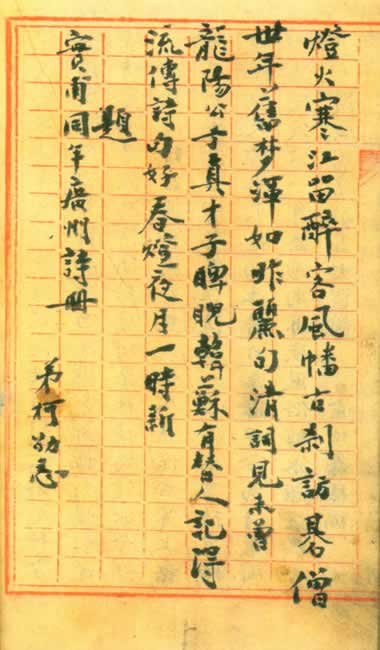 燈火寒江留醉客風幡古刹訪碁僧
卅年舊梦渾如昨麗句清詞見未曾
龍陽公子真才子睥睨韓蘇有替人記得
流傳詩句好春燈夜月一時新
題
實甫同年廣州詩冊
弟柯劭忞